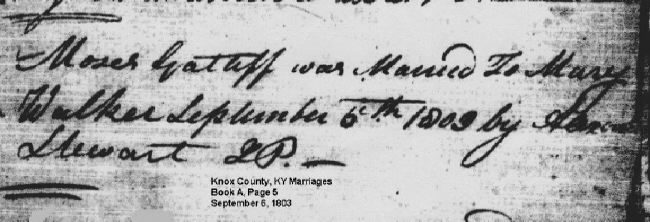 Moses Gatliff was Married To Mary
Walker September 6th 1803 by
Stewart J.P.
Knox County, KY Marriages
Book A, Page 5
September 6, 1803